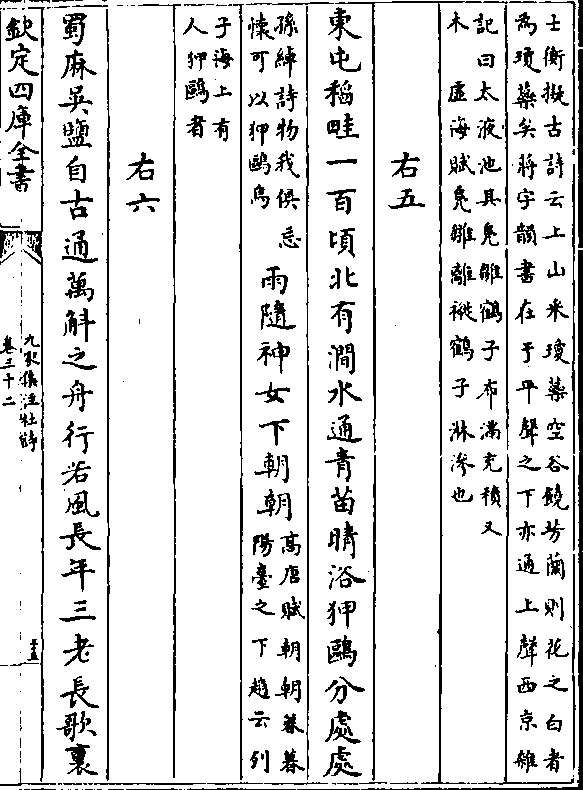 士衡擬古詩云上山采瓊蘂空谷饒芳蘭則花之白者
為瓊蘂矣將字韻書在于平聲之下亦通上聲西京雜
記曰太液池具鳧雛鶴子布滿充積又
木虛海賦鳧雛離褷鶴子淋滲也
右五
東屯稻畦一百頃北有澗水通青苗晴浴狎鷗分處處
孫綽詩物我俱忘
懐可以狎鷗鳥
雨隨神女下朝朝
高唐賦朝朝暮暮
陽臺之下趙云列
子海上有
人狎鷗者
右六
蜀麻吳鹽自古通萬斛之舟行若風長年三老長歌裏
欽定四庫全書
九家集注杜詩
卷三十二